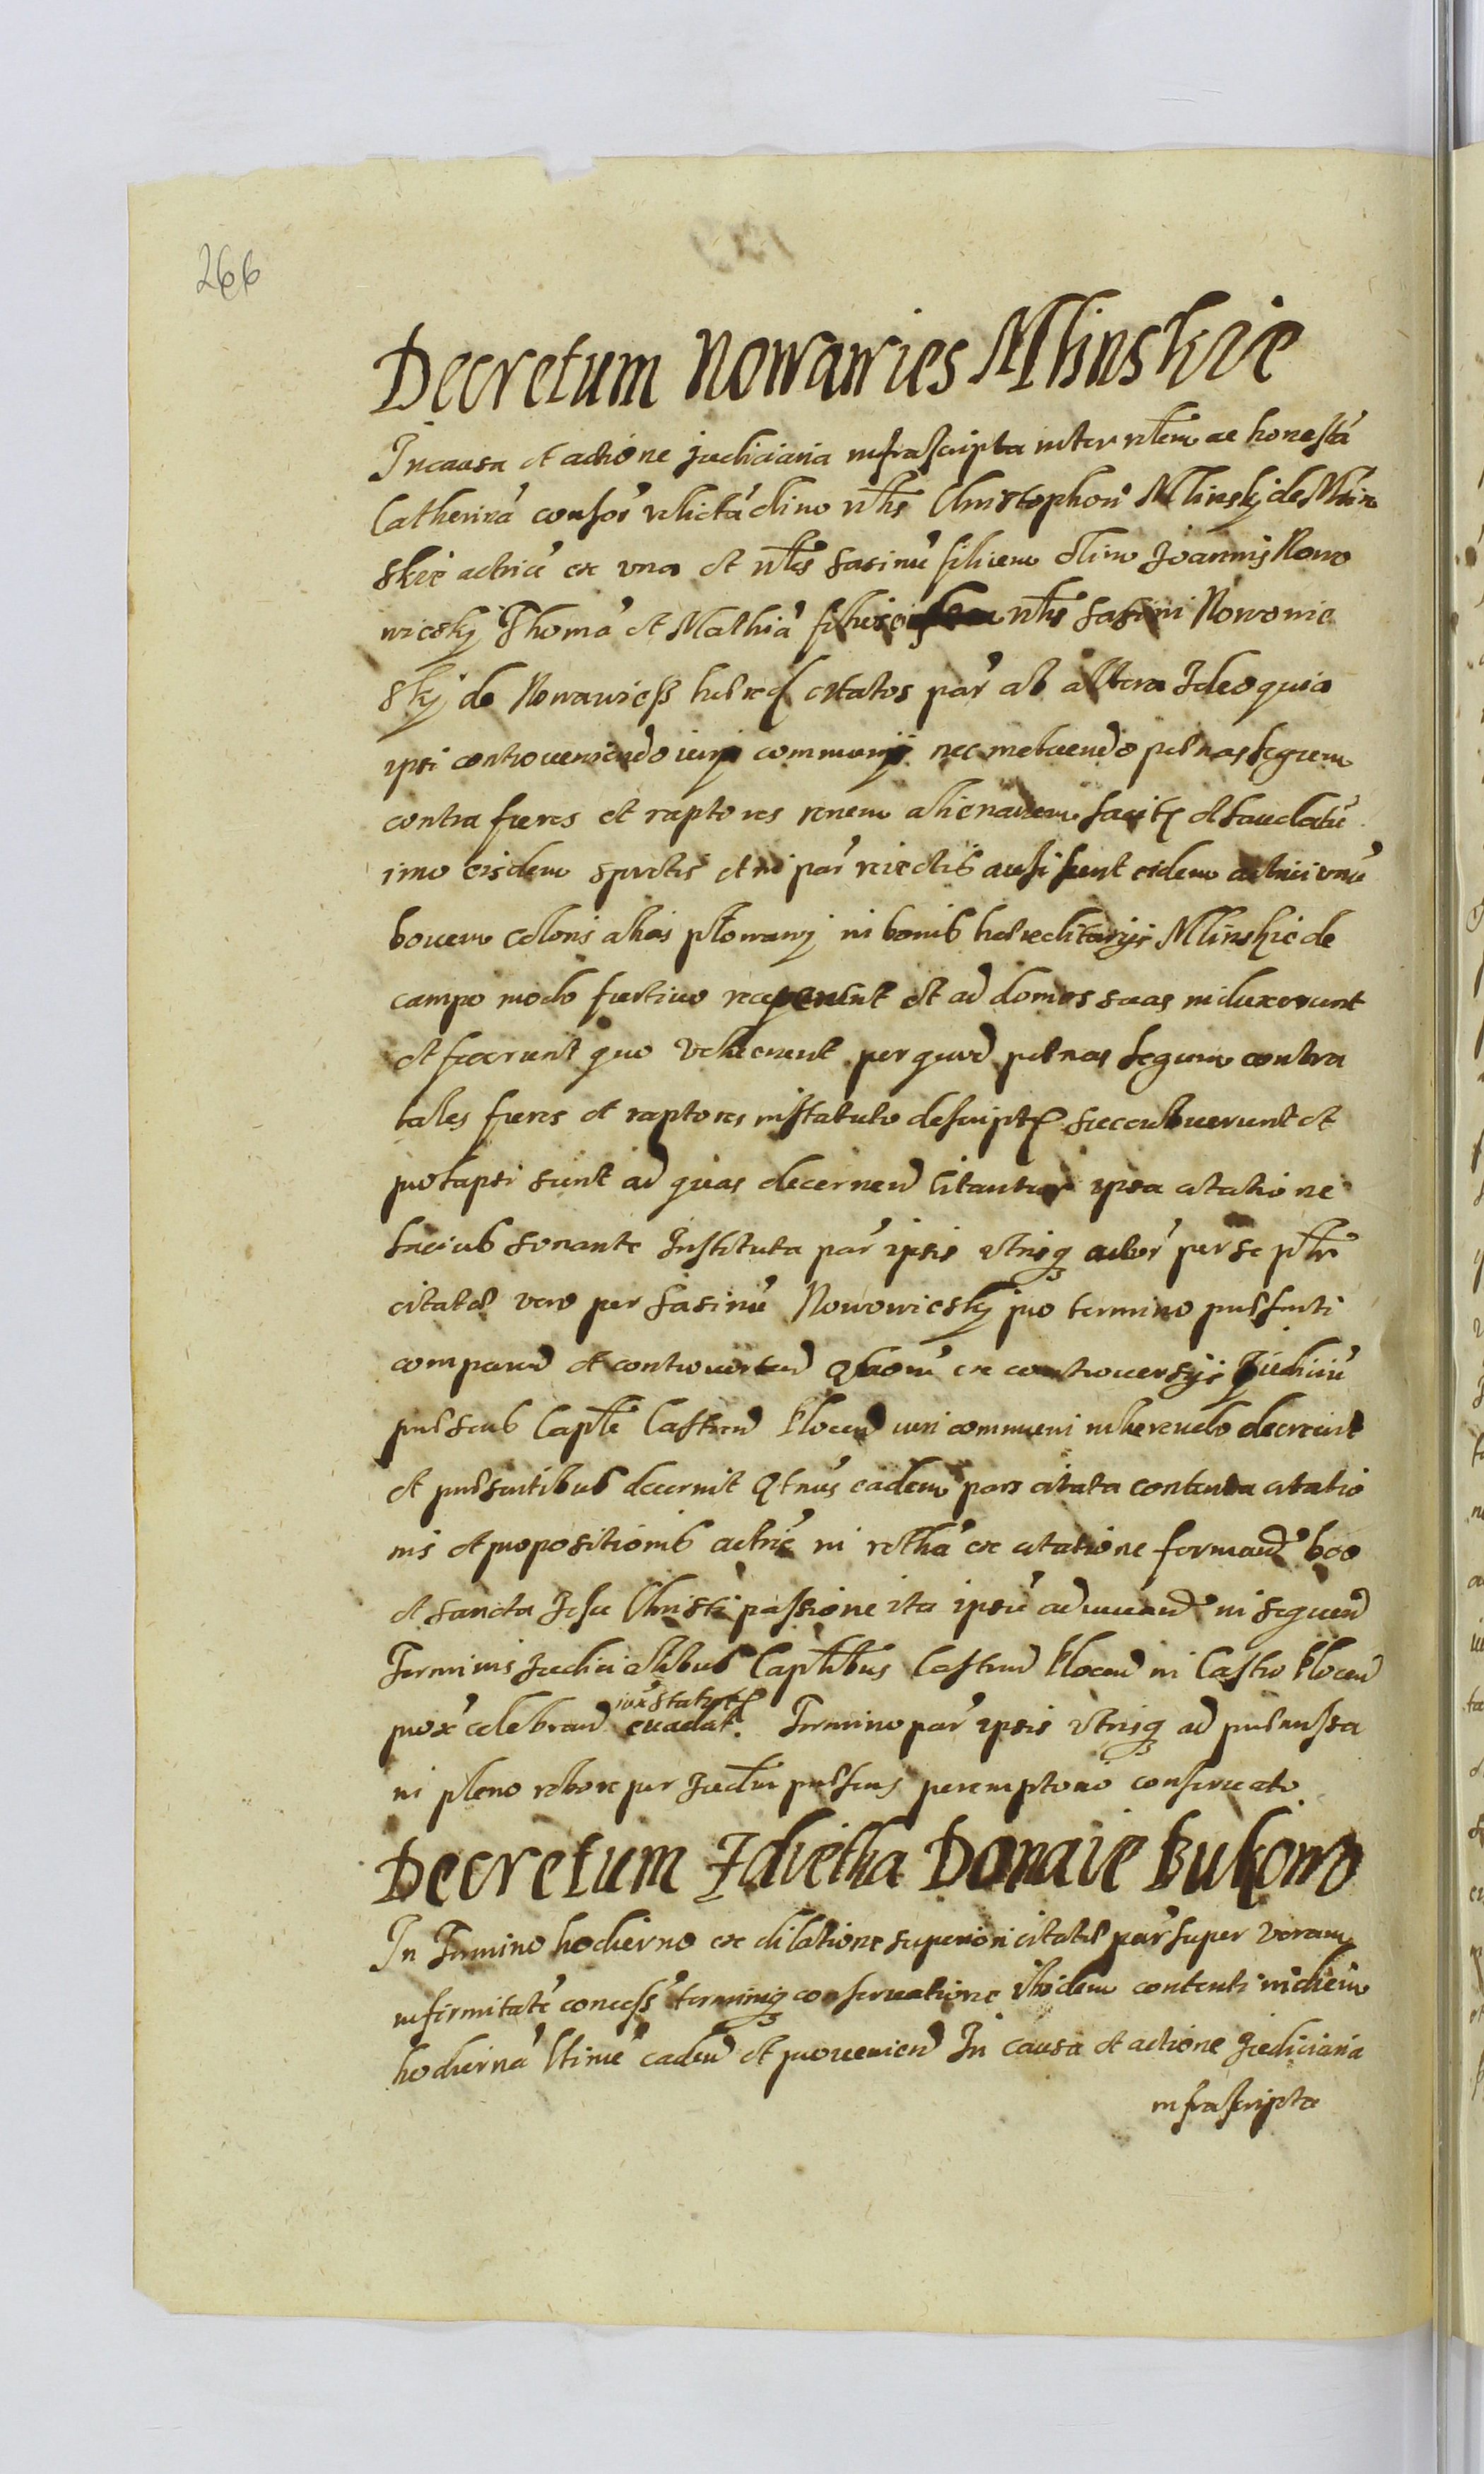 266
Decretum Nowawies Mlinskie
In causa et actione judiciaria infrascripta inter nlem ac honestā
Catherinā consor̄ relictā olim nlis Christophori Mlinskj de Mlin
skie actricē ex vna et nles Sasinū filium olim Joannis Nowo
wieskj Thomā et Mathiā filios nlis Sasini Nowowie
skj de Nowawiess hered citatos par̄ ab altera Ideo quia
ipsi contraveniendo iurj communj nec metuendo penas legum
contra fures et raptores renem alienarem sancit et laudatū
imo eisdem spretis et in par̄ reiectis ausi sunt eidem actrici vnū
bovem coloris alias płowawj in bonis hereditarijs Mlinskie de
campo modo furtivo receperunt et ad domos suas induxerunt
et fecerunt quo voluerunt per quod penas legum contra
tales fures et raptores in statuto descript succubuerunt et
prolapsi sunt ad quas decernend citantur ipsa citatione
lacius sonante Instituta par̄ ipsis vtrisq actor̄ per se pntr
citatis vero per Sasinū Nowowieskj pro termino prnsenti
comparend et controvertend Quorū ex controversijs Judiciū
prnsens Capitle Castren Plocen iuri communi inherendo decrevit
et prnsentibus decernit Qtnus eadem pars citata contenta citatio
nis et propositionis actricē in rothā ex citatione formand boo
et sancta Jesu Christi passione ita ipsū adiuvand in sequen
Terminis Judicialibus Capitlibus Castren Plocen in Castro Plocen
prox̄ celebrand iux̄ statut evadat. Termino par̄ ipsis vtrisq ad premissa
in pleno robore per Judm prnsens peremptorio conservato.
Decretum Idvetha Donaie Bukowo
In Termino hodierno ex dilatione superiori citatis par̄ super veram
infirmitatē concess̄ terminiq conservatione ibidem contenti in diem
hodiernā vltimē caden et provenien In causa et actione judiciaria
infrascripta